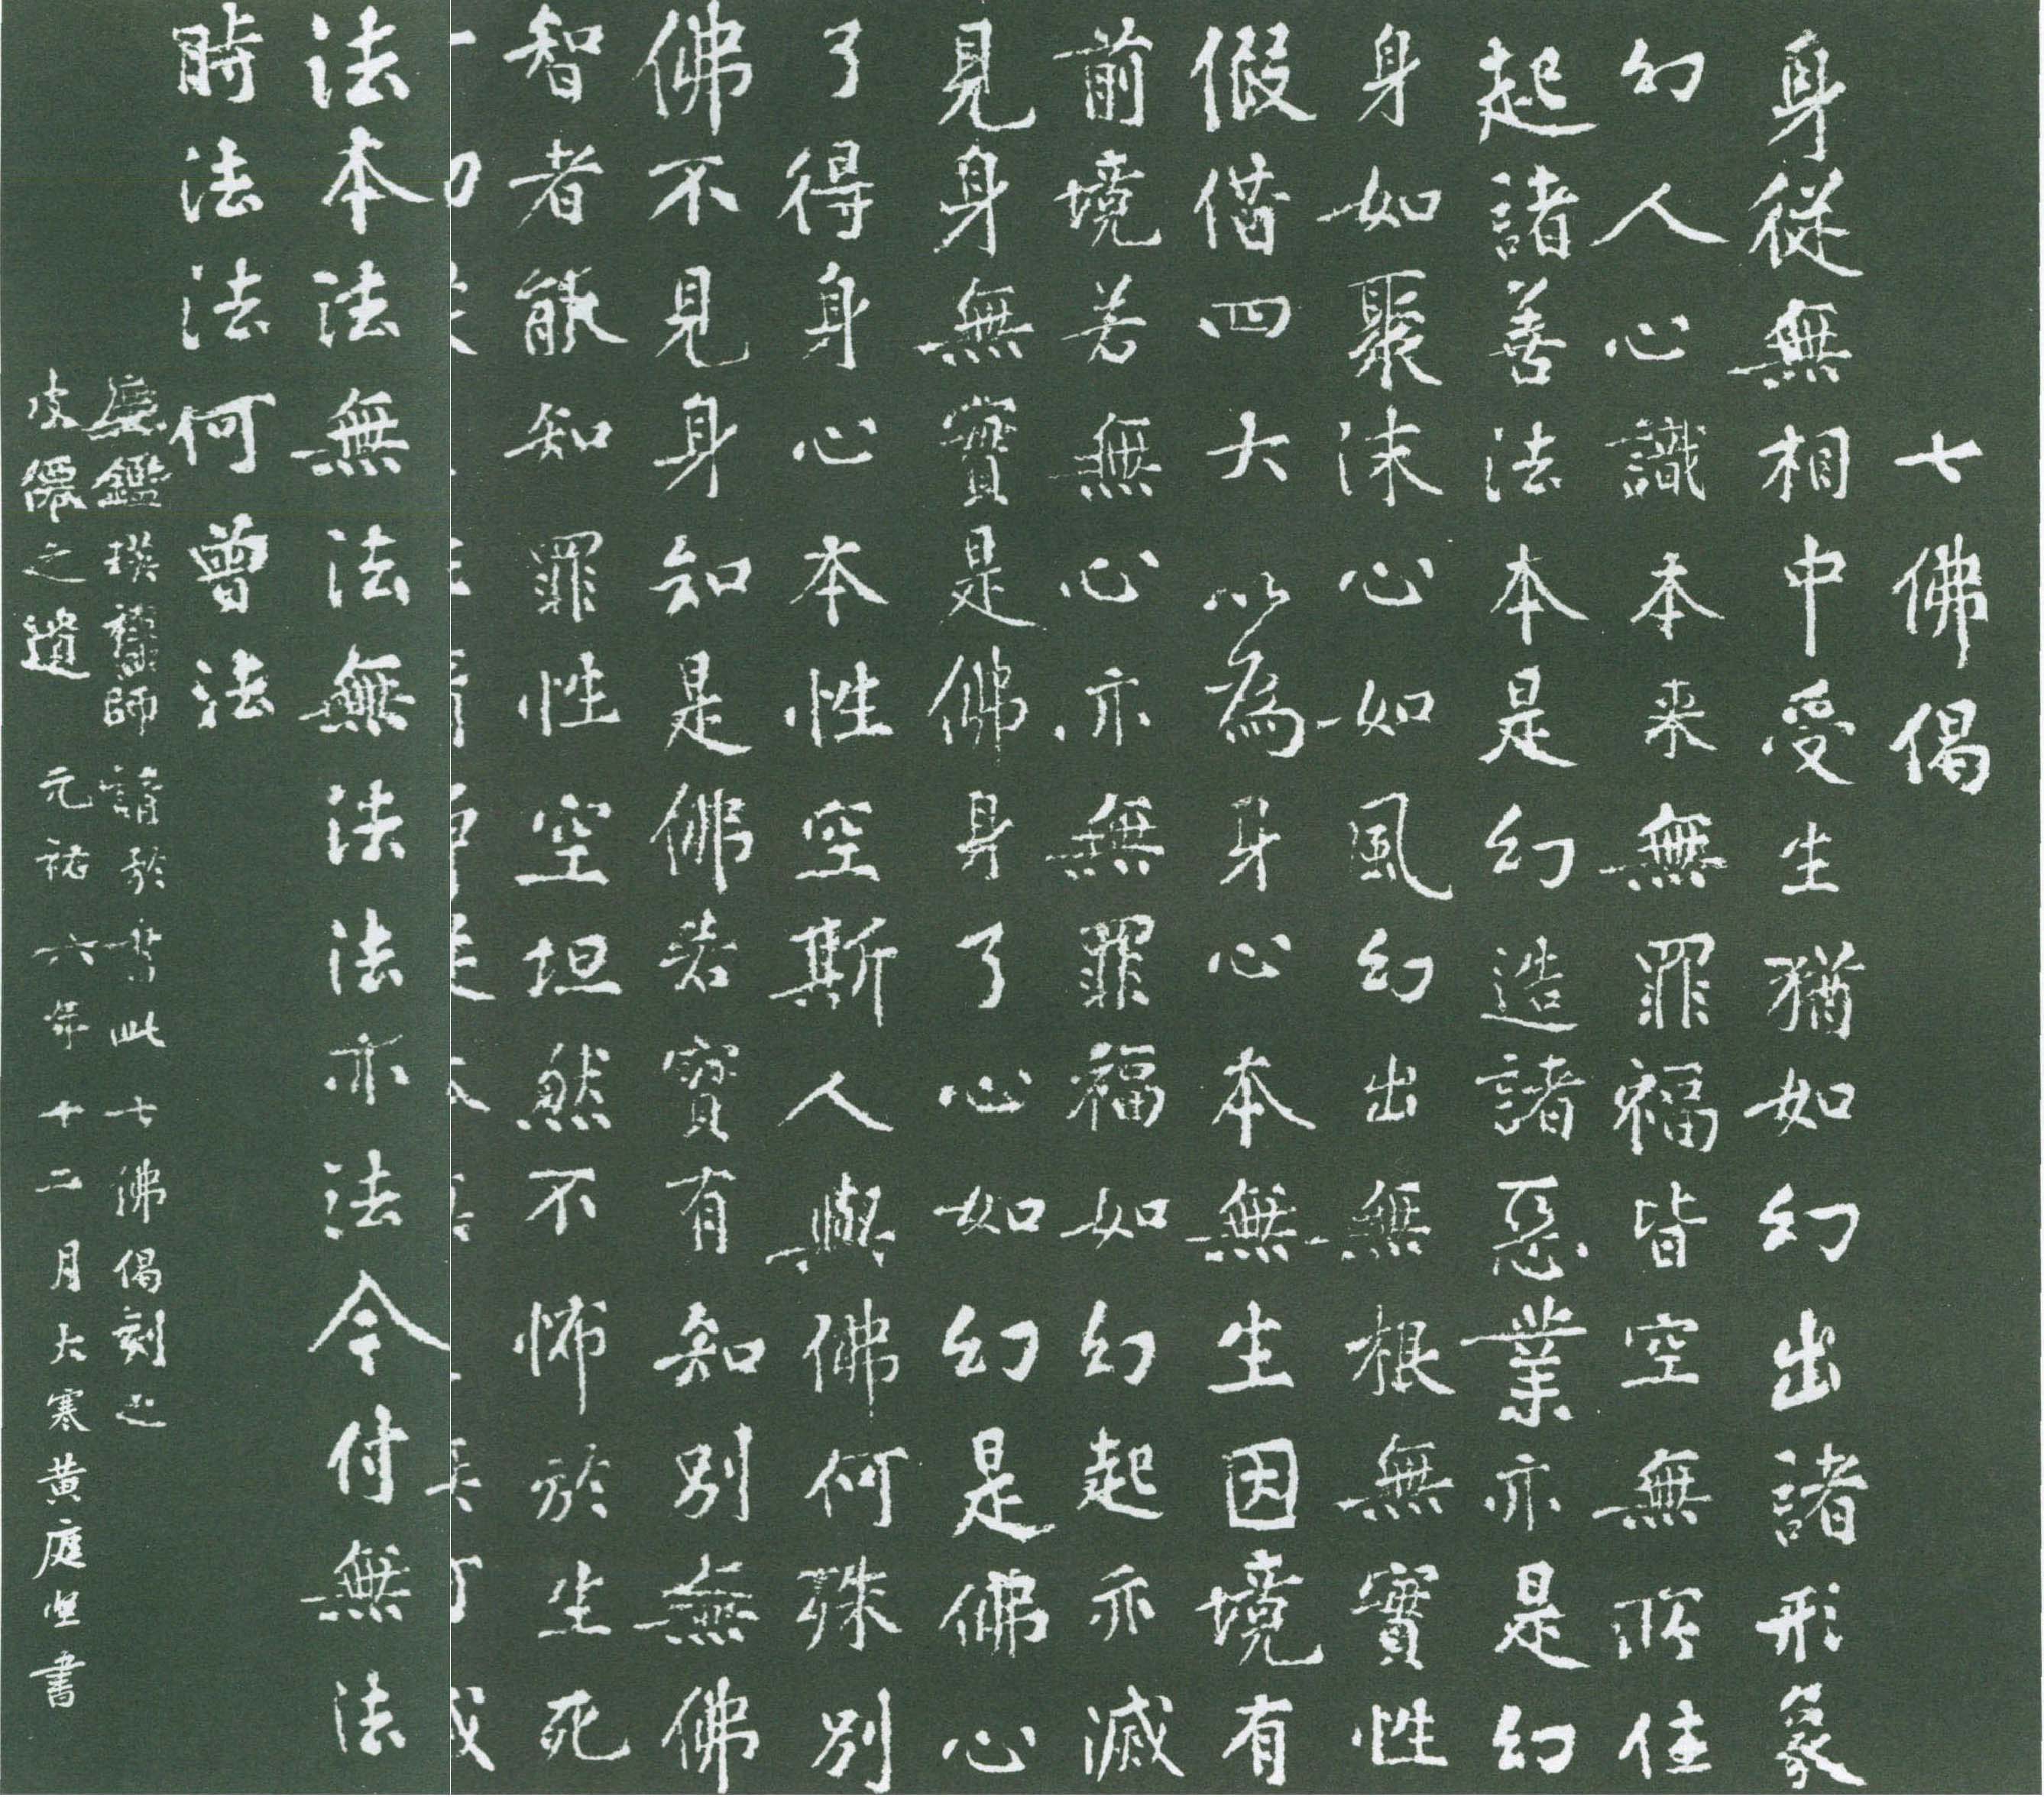 七佛偈
身從無相中受生猶如幻出諸形象
幻人心識本来無罪福皆空無所住
起諸善法本是幻造諸惡業亦是幻
身如聚沫心如風幻出無根無實性
假借四大以為身心本無生因境有
前境若無心亦無罪福如幻起亦滅
見身無實是佛身了心如幻是佛心
了得身心本性空斯人與佛何殊別
佛不見身知是佛若實有知別無佛
智者能知罪性空坦然不怖於生死
法本法無法無法法亦法今付無法
時法法何曾法
鑑瑛禪師請於書此七佛偈刻之
皮僊之遺 元祐六年十二月大寒黄庭坚書